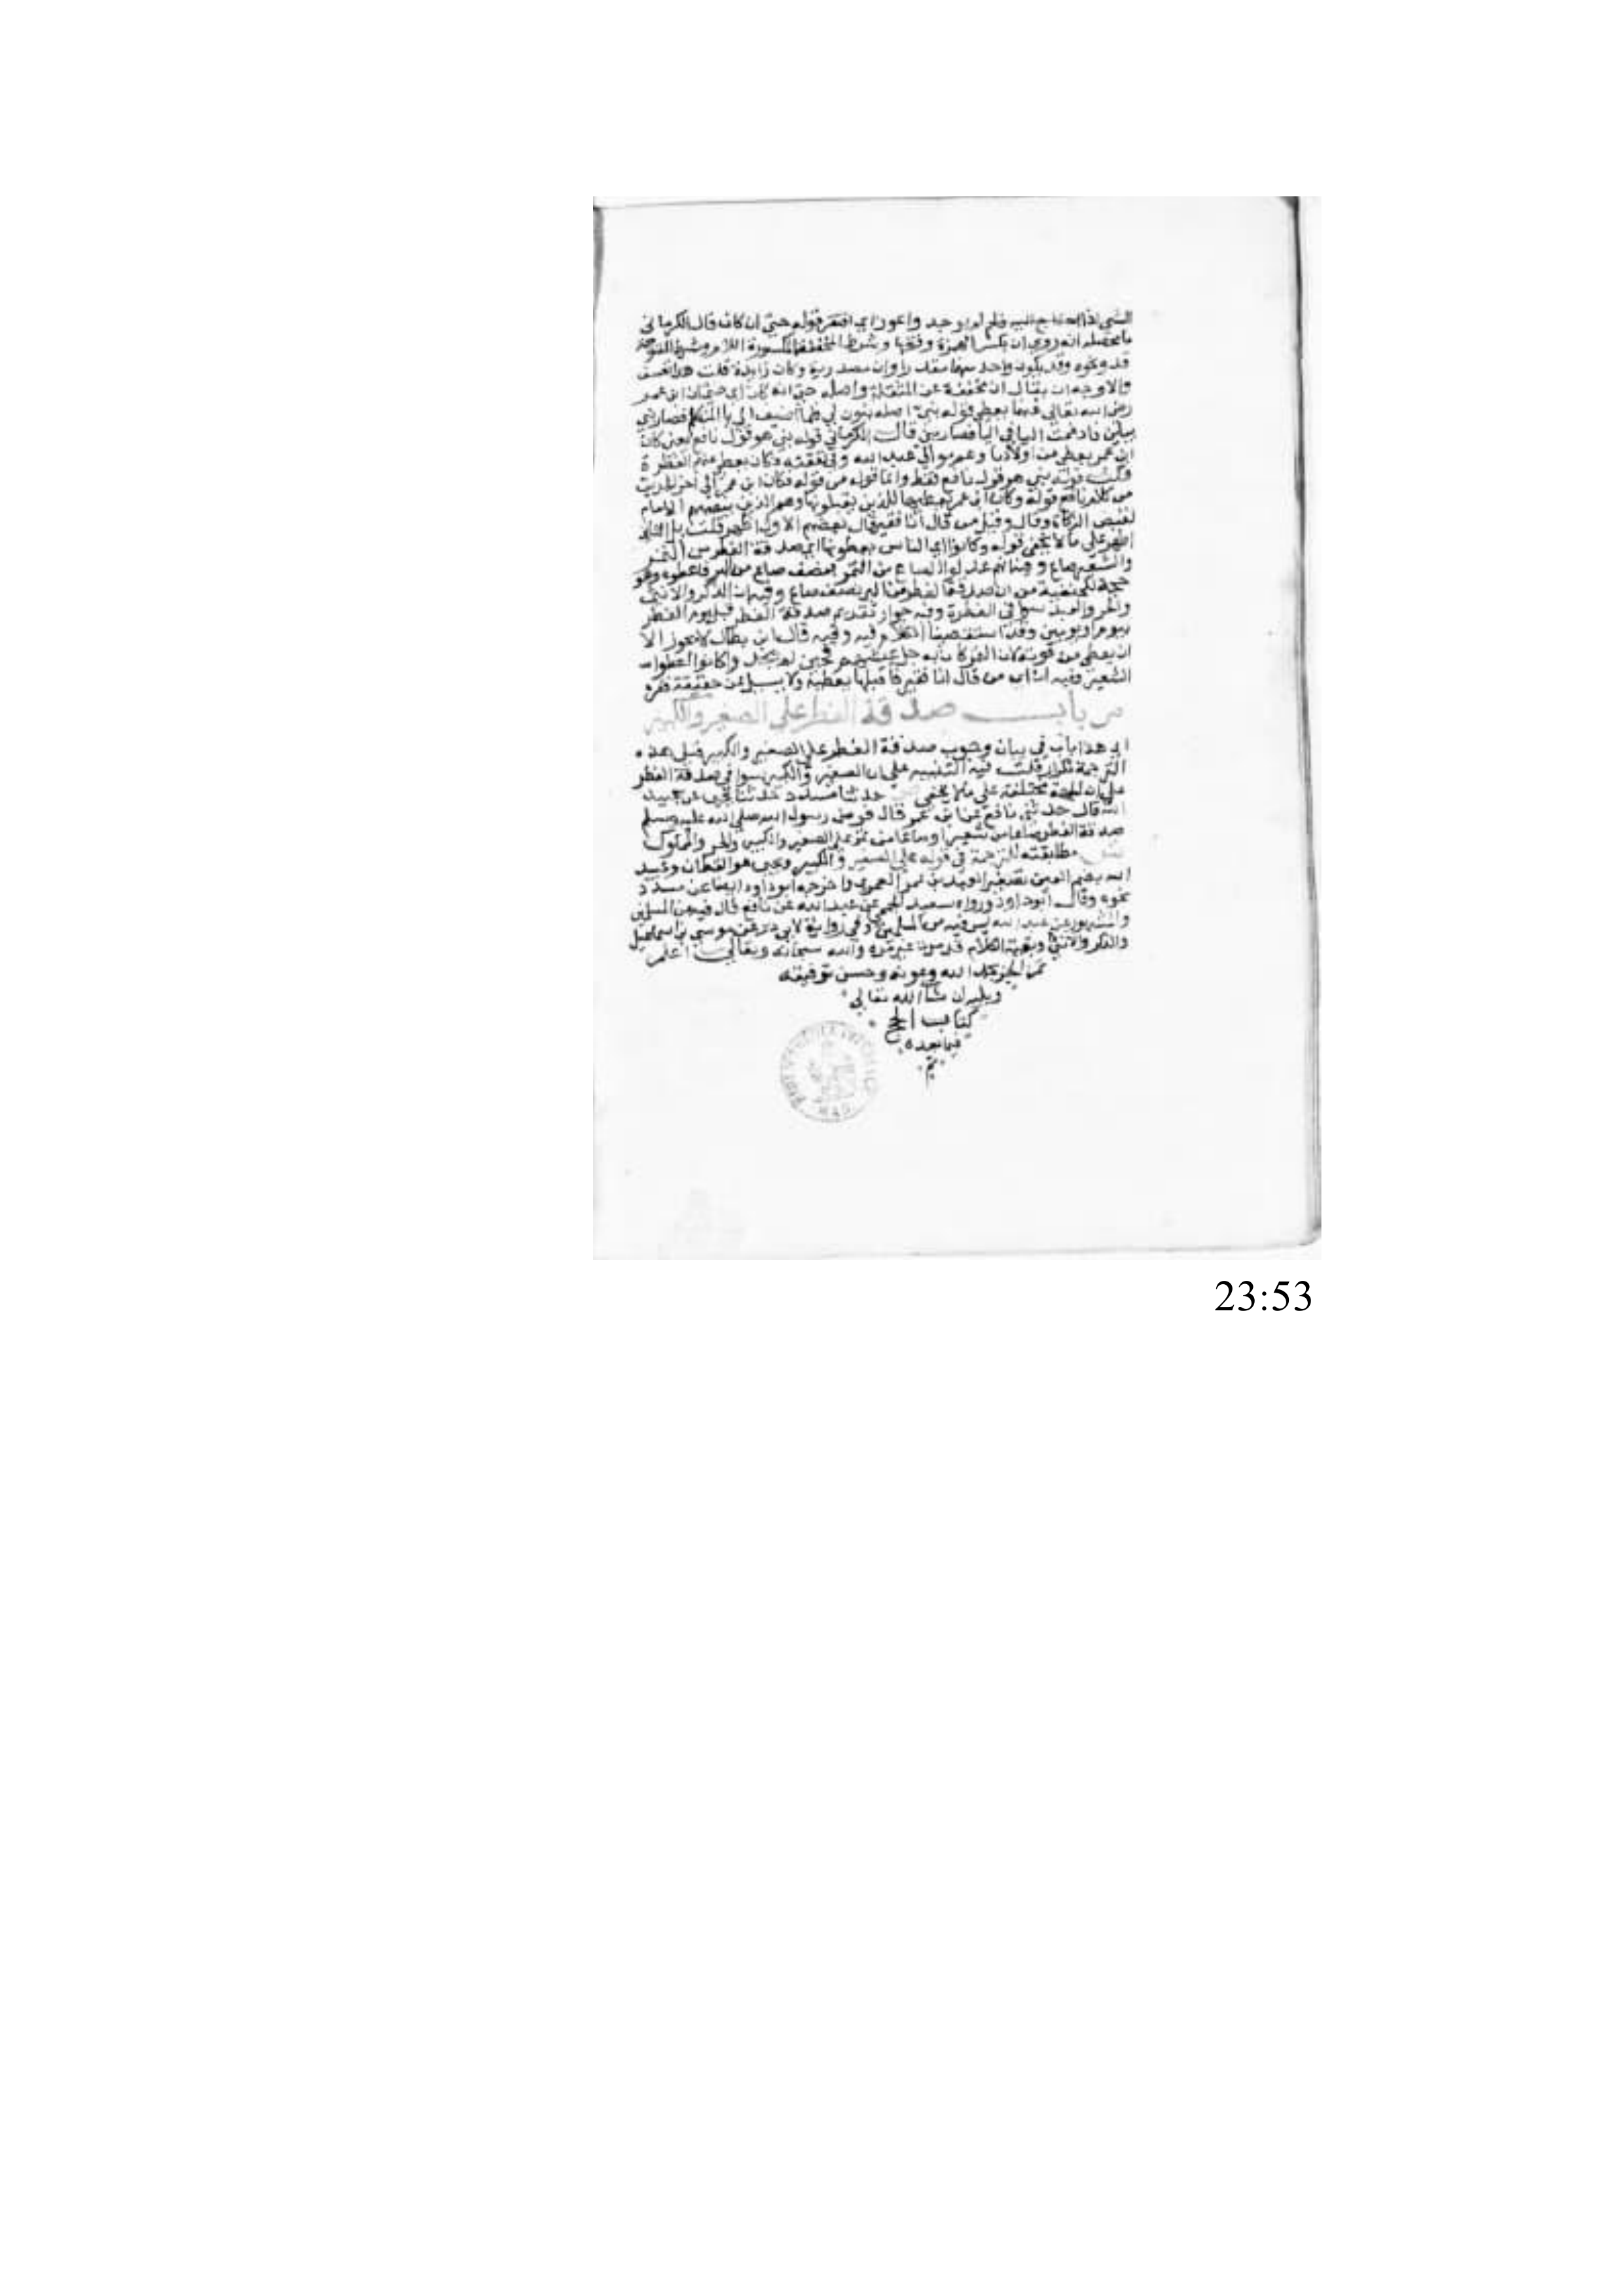 الشي اذا احتاج اليه فلم يوجد واعوز اي افتقر قوله حتى ان كان قال الكرماني
ما محصله انه روي ان بكسر الهمزة وفتحها وشرط المخففة المكسورة اللام وشرط المفتوحة
قد ونحوه وقد يكون واحد منهما مقدرا وان مصدرية وكان زايدة قلت هذا تعسف
والاوجه ان يقال ان مخففة عن المثقلة واصله حتى انه كان اي حتى ان ابن عمر
رضي الله تعالى يعطي قوله بني اصله بنون لي فلما اضيف الى يا المتكلم فصار بني
فادغمت اليا في اليا فصار بني قال الكرماني قوله بني هو قول نافع يعني كان
ابن عمر يعطي من اولادنا وهم موالي عبد الله وفي نفقته وكان يعطي عنهم الفطرة
قلت قوله بني هو قول نافع فقط وانما قوله من قوله فكان ابن عمر الى اخر الحديث
من كلام نافع قوله وكان ابن عمر يعطيها للذين يقبلونها وهم الذين ينصبهم الامام
لقبض الزكاة وقال وقيل من قال انا فقير قال بعضهم الاول اظهر قلت بل الثاني
اظهر على ما لا يخفى قوله وكانوا اي الناس يعطونها اي صدقة الفطر من التمر
والشعير صاع عدلوا الصاع من التمر بنصف صاع من البر فاعطوه وهو
حجة للحنفية من ان صدقة الفطر من البر نصف صاع وفيه ان الذكر والانثى
والحر والعبد سوا في الفطرة وفيه جواز تقديم صدقة الفطر قبل يوم الفطر
بيوم او يومين وقد استقصينا الكلام فيه وفيه قال ابن بطال لا يجوز الا
ان يعطي من قوته لان التمر كان حين لم يجد وكانوا اعطوا
الشعير وفيه ان من قال انا فقير فاقبلها يعطيه ولا يسيل عن حقيقة فقره
ص باب صدقة الفطر على الصغير والكبير
اي هذا باب في بيان وجوب صدقة الفطر على الصغير والكبير قيل هذه
الترجمة تكرار قلت فيه التنبيه على ان الصغير والكبير سوا في صدقة الفطر
على ان الجهة مختلفة على ما لا يخفى ص حدثنا مسدد حدثنا يحيى عن عبيد
الله قال حدثني نافع عن ابن عمر قال فرض رسول الله صلى الله عليه وسلم
صدقة الفطر صاعا من شعير او صاعا من تمر على الصغير والكبير والحر والمملوك
ش مطابقته للترجمة في قوله على الصغير والكبير ويحيى هو القطان وعبيد
الله بضم العين تصغير العبد بن عمر العمري واخرجه ابو داود ايضا عن مسدد
نحوه وقال ابو داود ورواه سعيد الجمحي عن عبيد الله عن نافع قال فيه من المسلمين
والمشهور عن عبيد الله ليس فيه من المسلمين وفي رواية لابي داود عن موسى بن اسماعيل
والذكر والانثى وبقية الكلام قد مرت غير مرة والله سبحانه وتعالى اعلم
تم الجزء بحمد الله وعونه وحسن توفيقه
ويليه ان شا الله تعالى
كتاب الحج
فما بعده
تم
23:53